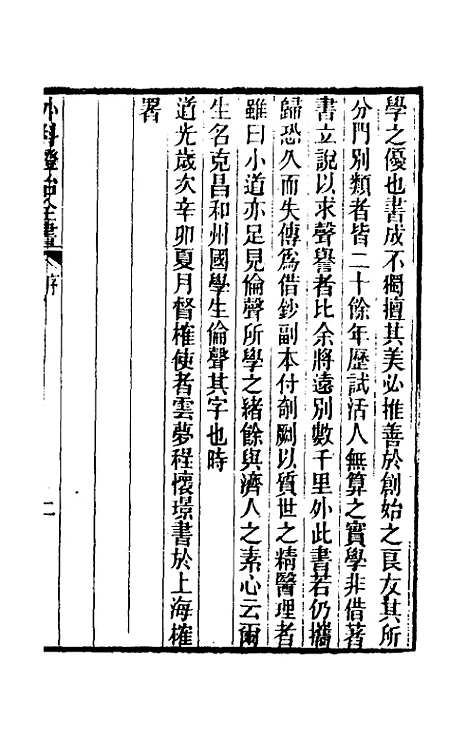 學之優也書成不獨擅其美必推善於創始之良友其所
分門別類者皆二十餘年歷試活人無算之實學非借著
書立說以求聲譽者比余將遠別數千里外此書若仍攜
歸恐久而失傳爲借鈔副本付剞劂以質世之精醫理者
雖曰小道亦足見倫聲所學之緒餘與濟人之素心云爾
生名克昌和州國學生倫聲其字也時
道光歲次辛卯夏月督榷使者雲夢程懷璟書於上海榷
署
外科證治全書 序 二